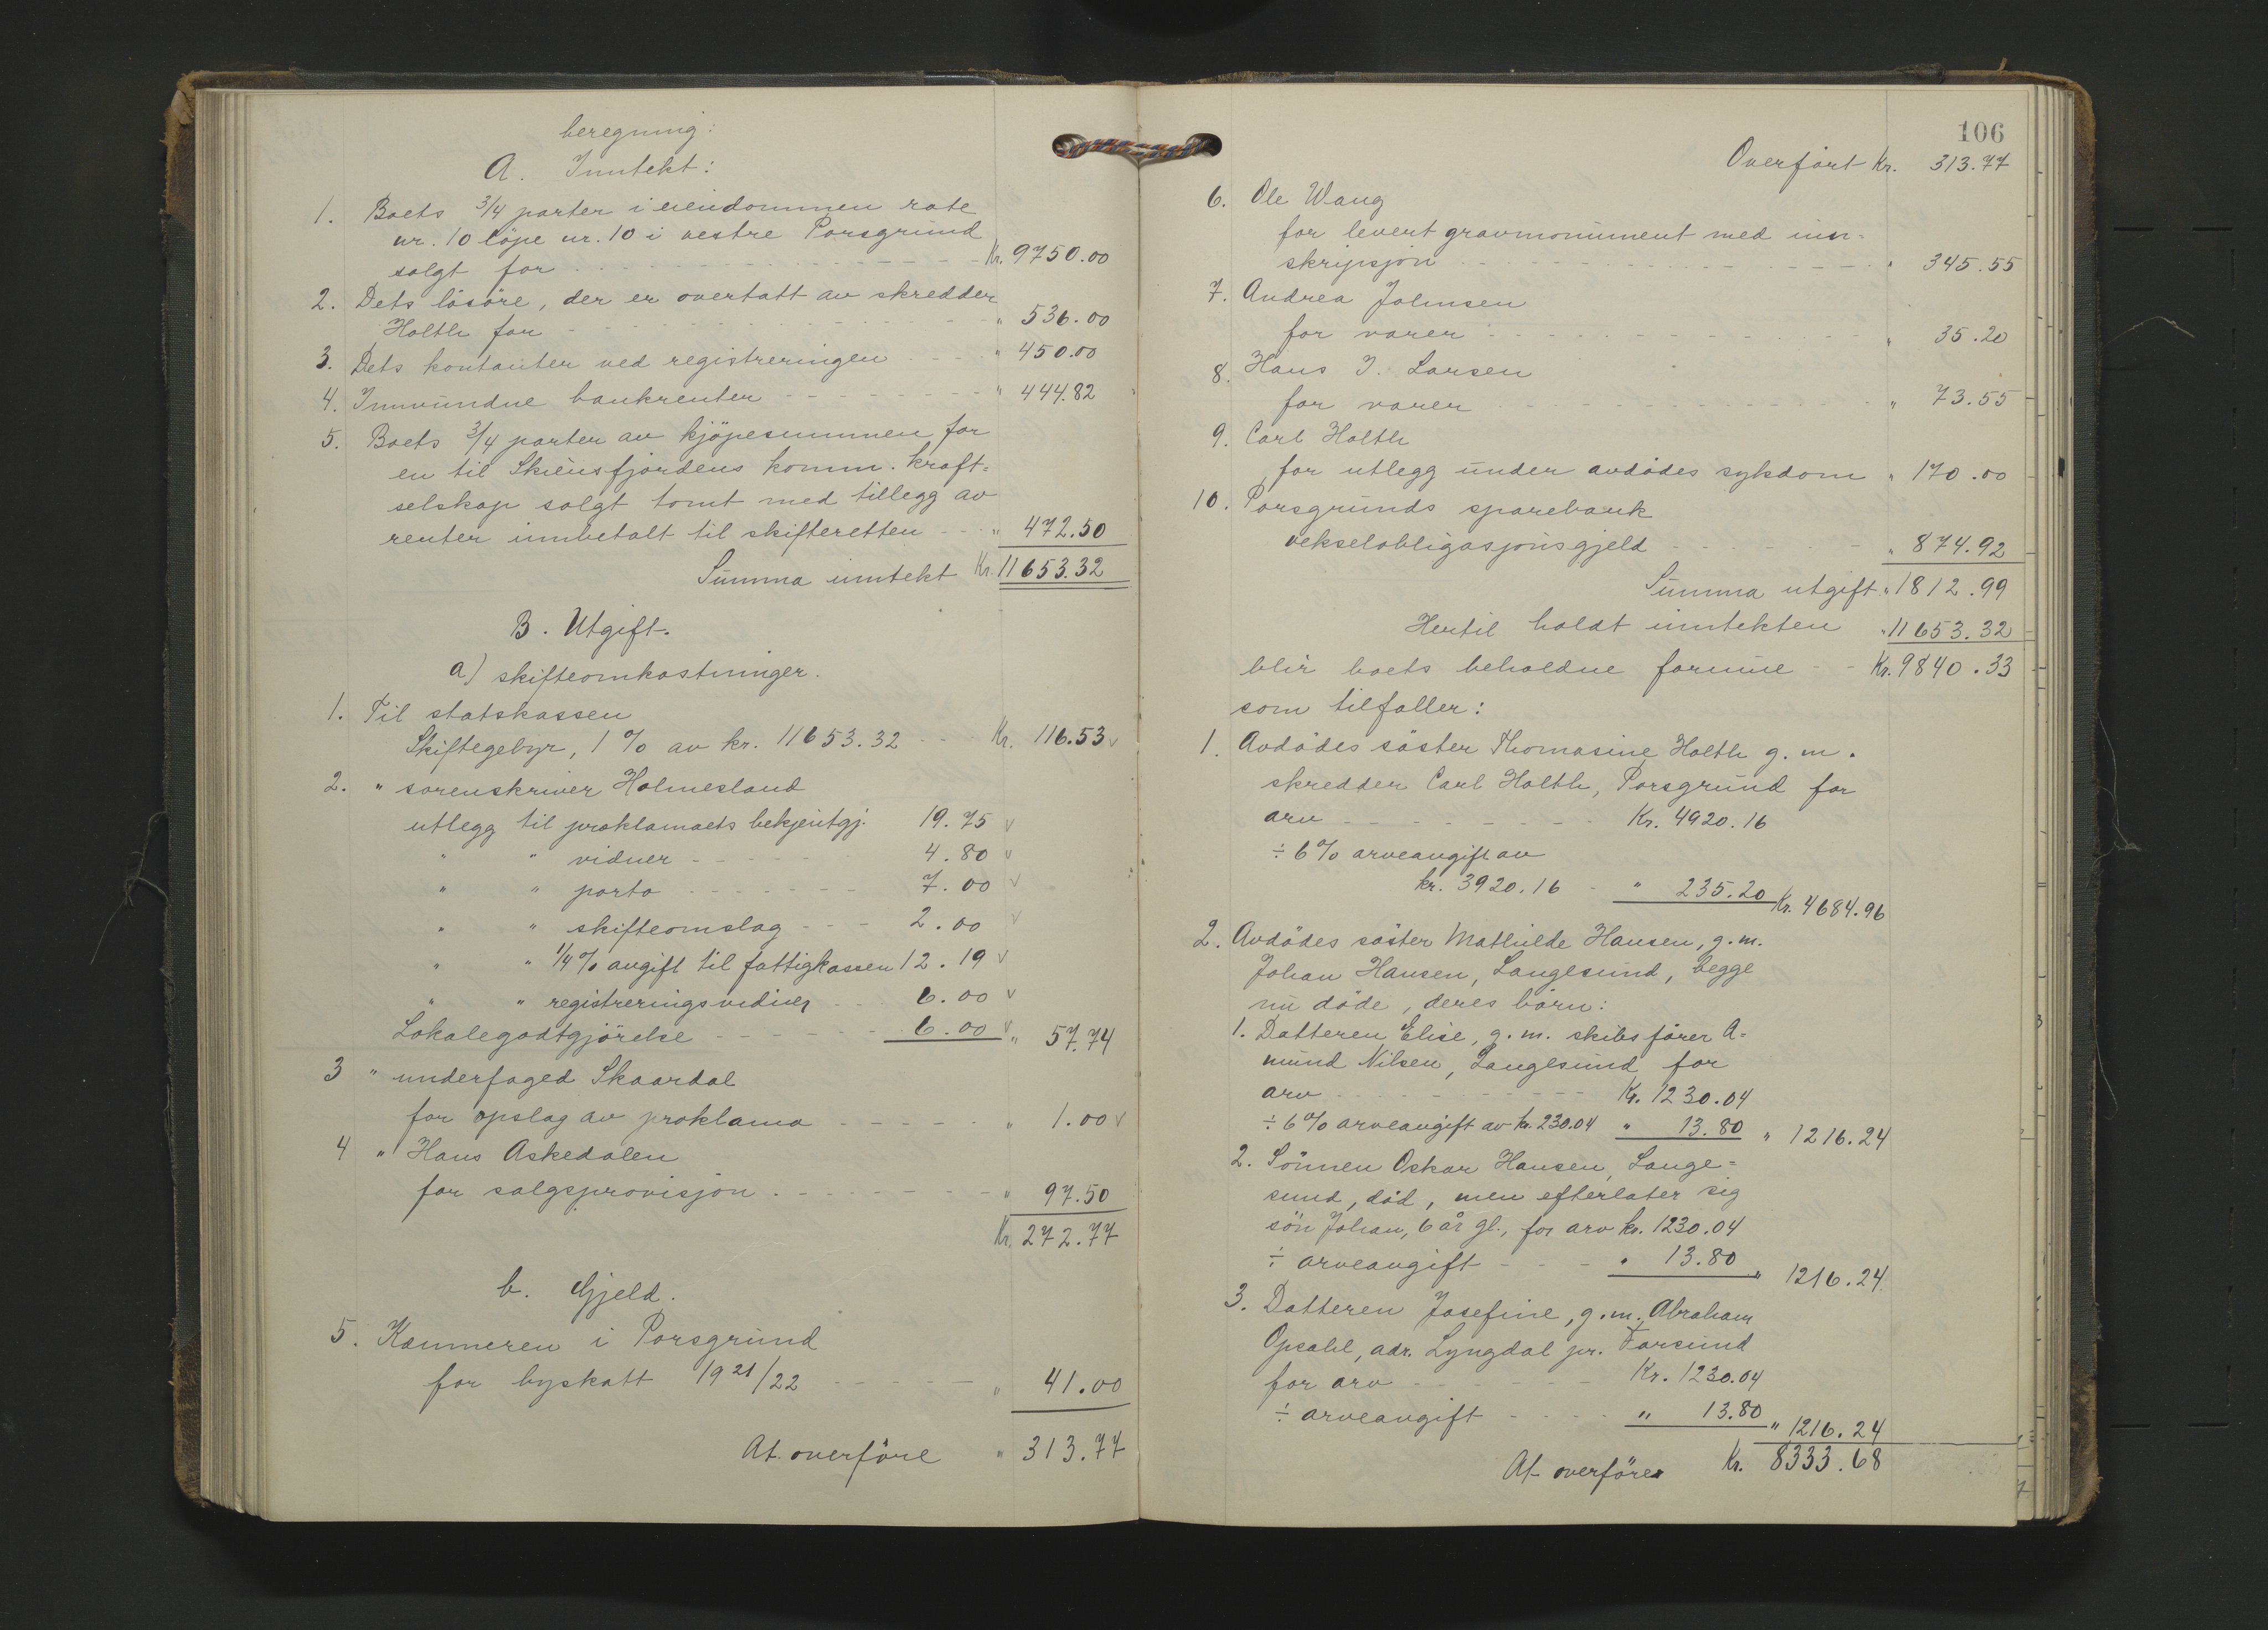 beregning:
A. Inntekt:
1. Boets 3/4 parter i eiendommen rote
nr. 10 löpe nr. 10 i vestre Porsgrund
solgt for - - - Kr. 9750.00
2. Dets lösöre, der er overtatt av skredder
Holth for - - - " 536.00
3. Dets kontanter ved registreringen - - - " 450.00
4. Innvundne bankrenter - - - " 444.82
5. Boets 3/4 parter av kjöpesummen for
en til Skiensfjordens komm. kraft=
selskap solgt tomt med tillegg av
renter innbetalt til skifteretten - - " 472.50
Summa inntekt Kr. 11653.32
B. Utgift.
a) skifteomkostninger.
1. Til statskassen
Skiftegebyr, 1 % av kr. 11653.32 - - - Kr. 116.53 v
2. " sorenskriver Holmesland
utlegg til proklamaets bekjentgj. 19.75 v
" " vidner - - - 4.80 v
" " porto - - - 7.00 v
" " skifteomslag - - - 2.00 v
" " 1/4 % avgift til fattigkassen 12.19 v
" " registreringsvidner - - 6.00 v
Lokalegodtgjörelse - - - 6.00 v " 57.74
3 " underfoged Skaardal
for opslag av proklama - - - " 1.00 v
4 " Hans Askedalen
for salgsprovisjon - - - " 97.50
Kr. 272.77
b. Gjeld.
5. Kemneren i Porsgrund
for byskatt 1921/22 - - - " 41.00
At overföre " 313.77
106
Overfört Kr. 313.77
6. Ole Wang
for levert gravmonument med inn-
skripsjon - - - " 345.55
7. Andrea Johnsen
for varer - - - " 35.20
8. Hans J. Larsen
for varer - - - " 73.55
9. Carl Holth
for utlegg under avdödes sykdom " 170.00
10. Porsgrunds sparebank
vekselobligasjonsgjeld - - - " 874.92
Summa utgift " 1812.99
Hertil holdt inntekten " 11653.32
blir boets beholdne formue - - Kr. 9840.33
som tilfaller:
1. Avdödes söster Thomasine Holth g. m.
skredder Carl Holth, Porsgrund for
arv - - - Kr. 4920.16
÷ 6 % arveavgift av
kr. 3920.16 - " 235.20 Kr. 4684.96
2. Avdödes söster Mathilde Hansen, g. m.
Johan Hansen, Langesund, begge
nu döde, deres börn:
1. Datteren Elise, g. m. skibsförer A=
mund Nilsen, Langesund for
arv - - - Kr. 1230.04
÷ 6 % arveavgift av kr. 230.04 " 13.80 " 1216.24
2. Sönnen Oskar Hansen, Lange=
sund, död, men efterlater sig
sön Johan, 6 år gl., for arv kr. 1230.04
÷ arveavgift - - - " 13.80 " 1216.24
3. Datteren Josefine, g. m. Abraham
Opsahl, adr. Lyngdal pr. Farsund
for arv - - - Kr. 1230.04
÷ arveavgift - - - " 13.80 " 1216.24
At overföres Kr. 8333.68